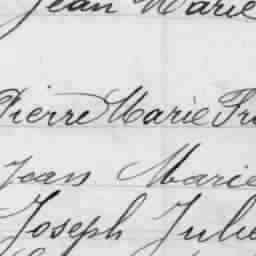 Jean Marie
Pierre Marie Fr
Jean Marie
Joseph Jule